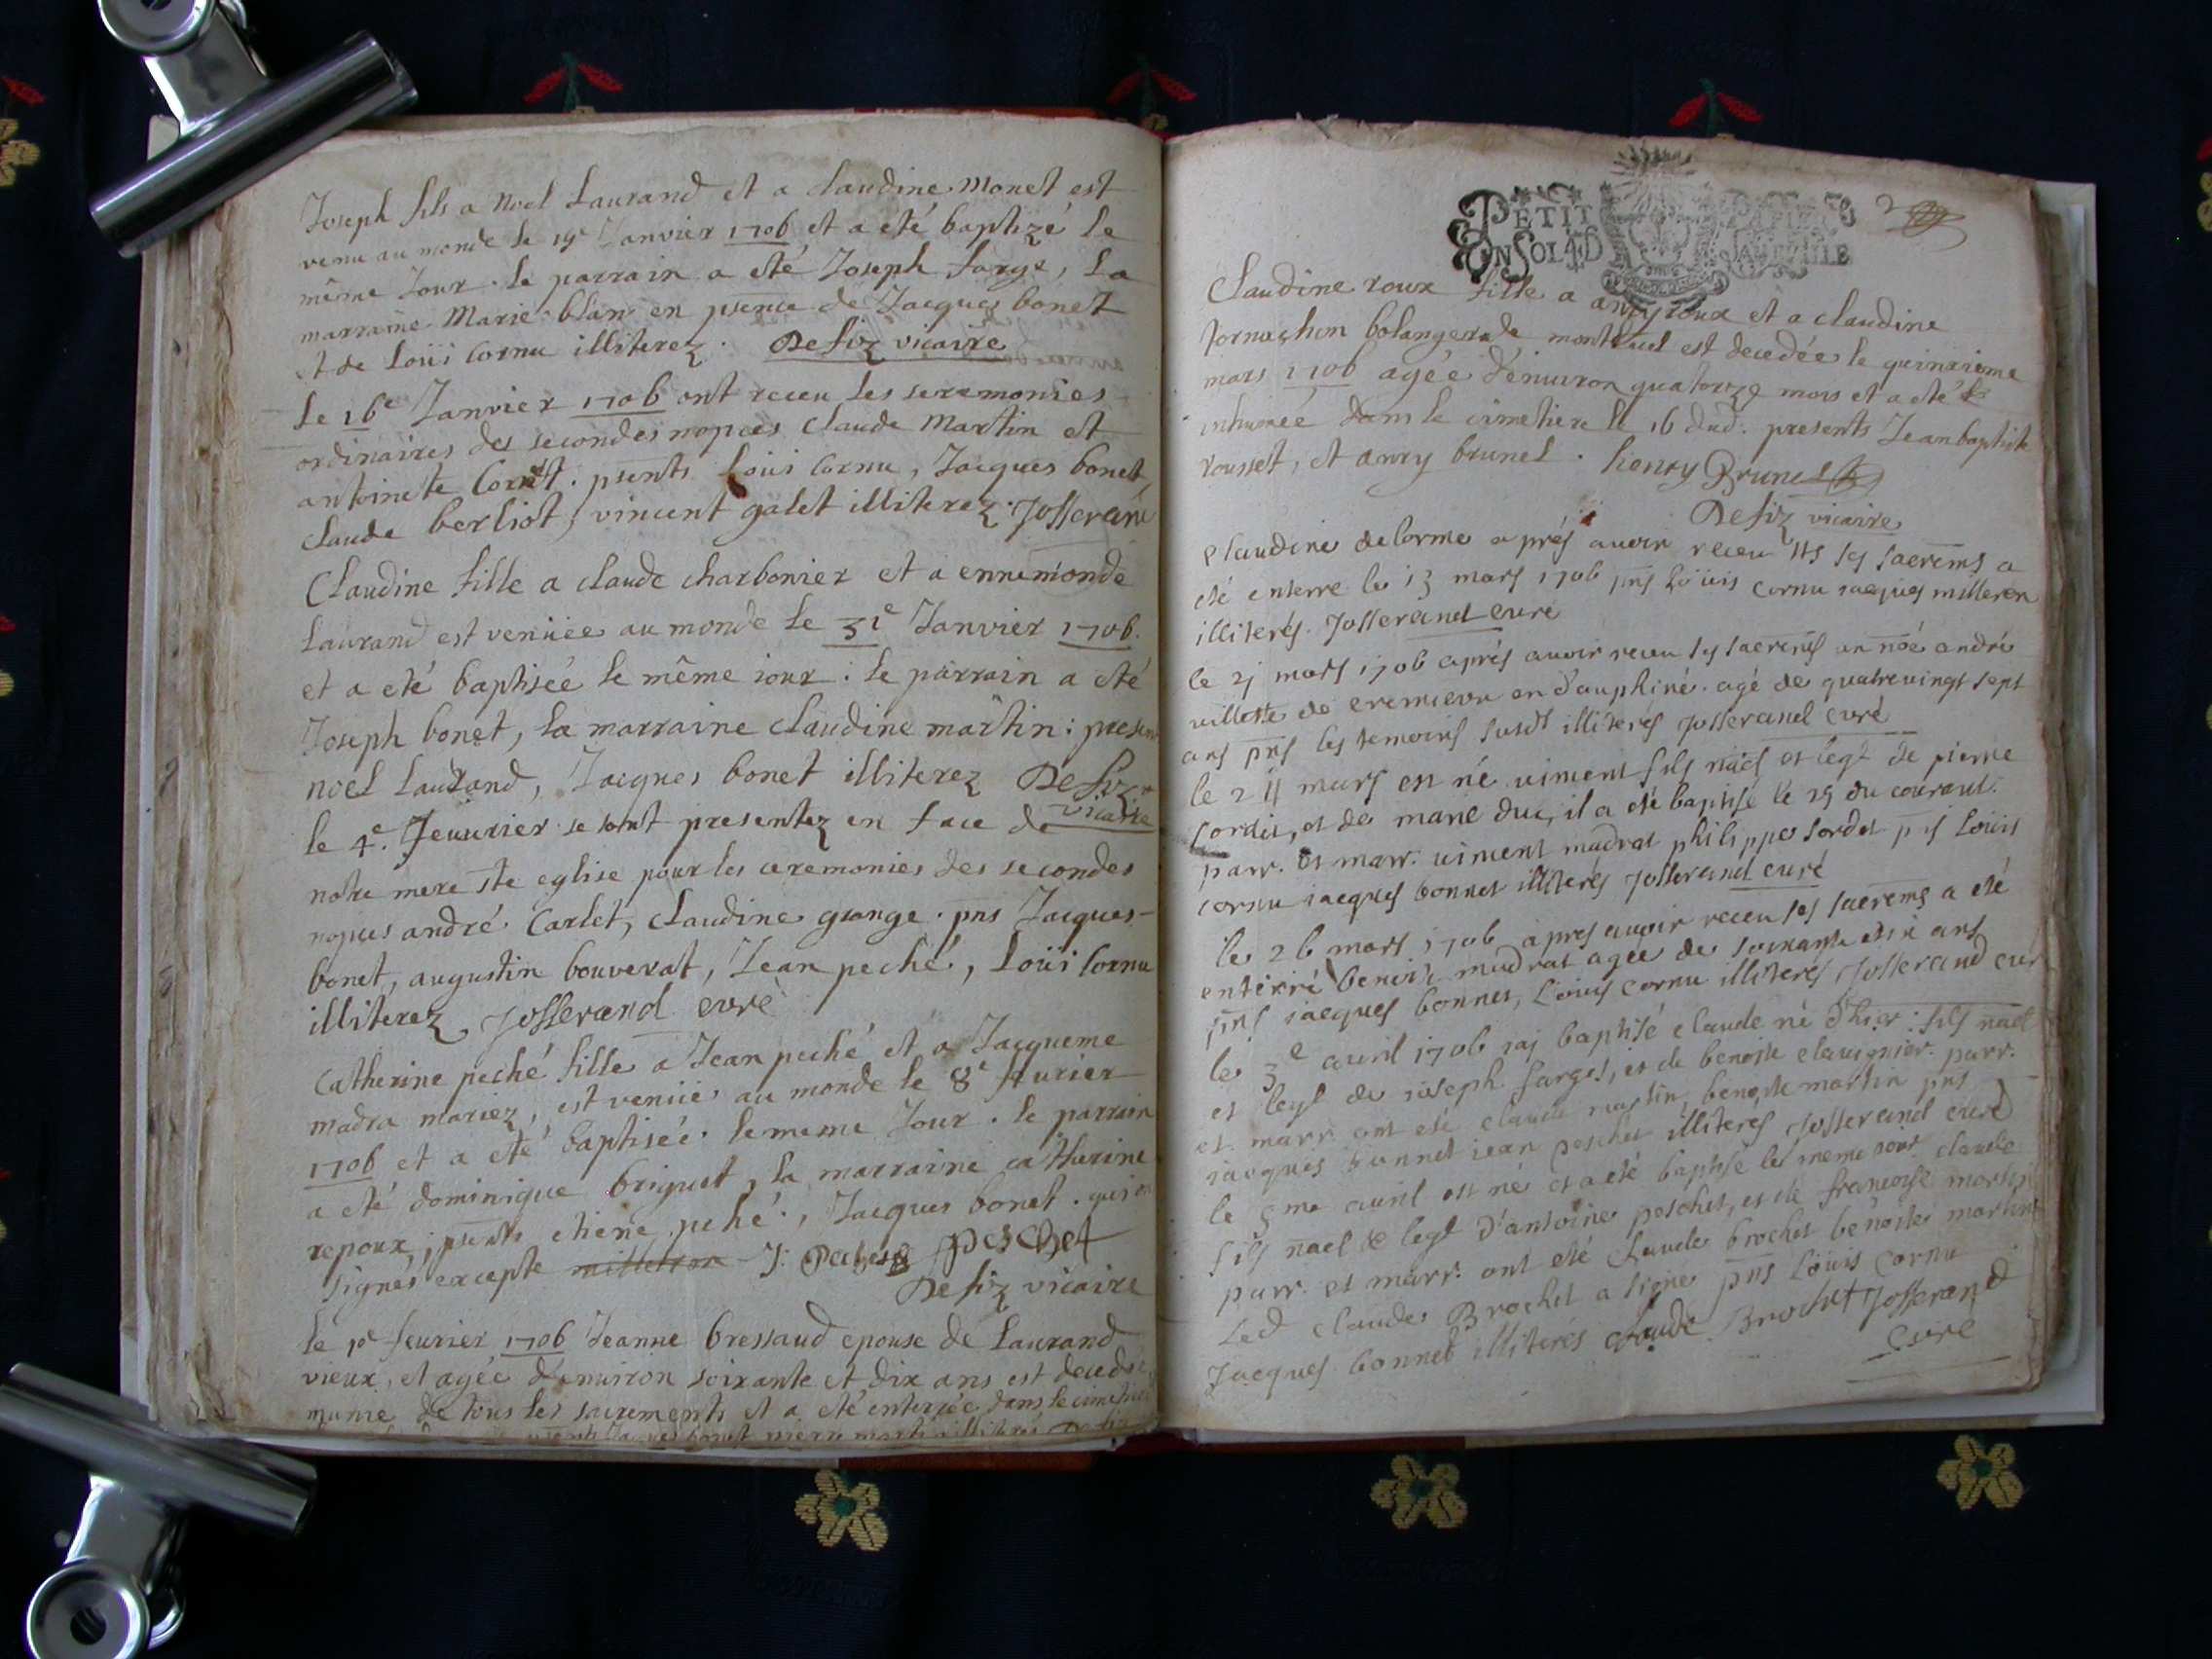 Joseph fils a Noel Laurand et a Claudine Monet est
venu au monde le 19e Janvier 1706 et a eté baptizé le
même Jour. le parrain a eté Joseph farge, La
marraine Marie blan en psence de Jacques bonet
et de Loüi Cornu illiterez. Defiz vicaire
Le 16e Janvier 1706 ont receu les seremonies
ordinaires des secondes nopces Claude Martin et
antoinete psents Loüi Cornu, Jacques bonet,
Claude berliot, vincent galet illiterez. Josserand
Claudine fille a claude charbonier et a ennemonde
Laurand est venüee au monde le 31e Janvier 1706.
et a eté baptisée le même iour. le parrain a eté
Joseph bonet, la marraine claudine martin: presens
noel Laurand, Jacques bonet illiterez Defiz
vicaire
le 4e. feuurier se sont presentez en face de
notre mere ste eglise pour les ceremonies des secondes
nopces andré Carlet, Claudine grange. pns Jacques
bonet, augustin bouverat, Jean peché, Loüi Cornu
illiterez Josserand curé
Catherine peché fille a Jean peché et a Jacqueme
madra mariez, est venüe au monde le 8e feurier
1706 et a eté baptisée le meme Jour. le parrain
a eté dominique briguet, la marraine catherine
repoux, psents etiene peché, Jacques bonet. qui on
signés excepté milleron J. peschet
Defiz vicaire
le 10 feurier 1706 Jeanne bressaud epouse de Laurand
vieux, et agée d'enuiron soixante et dix ans est decedée
munie de tous les sacrements et a eté enterrée dans le cimetiere
psents Jacques bonet pierre martin illiterés
PETIT PAPIER
UN SOL 4 D LA FEUILLE
2
Claudine roux fille a anry roux et a claudine
bolangers de montluel est decedée le quinzieme
mars 1706 agée d'enuiron quatorze mois et a eté
inhumée dans le cimetiere le 16 dud. presents Jean baptiste
rousset, et anry brunel. henry Brunel
Defiz vicaire
Claudine delorme aprés auoir receu tts les sacrems a
eté enterre le 13 mars 1706 pns Loüis cornu iacques milleron
illiterés. Josserand curé
le 21 mars 1706 aprés auoir receu les sacrems un nõé andré
uillette de cremieux en dauphiné. agé de quatreuingt sept
ans pns les temoins susdt illiterés Josserand curé
le 24 mars est né uincent fils nãel et legt de pierre
sordet, et de marie duc, il a eté baptisé le 25 du courant.
parr. et marr. uincent madrat philippe sordet pns Loüis
cornu iacques bonnet illiterés Josserand curé
le 26 mars 1706 apres auoir receu les sacrems a eté
enterré benoit madrat agee de soixante dix ans
pns iacques bonnet, Loüis cornu illiterés Josserand curé
le 3e auril 1706 iay baptisé claude né d'hier fils nael
et legt de ioseph farges, et de benoite parr.
et marr. ont eté claude martin, benoite martin pns
iacques bonnet iean peschet illiterés Josserand curé
le 5me auril est né et a eté baptisé le meme iour claude
fils nael & legt d'antoine peschet, et de francoise martin
parr. et marr. ont eté claude brochet benoite martin
Led claude Brochet a signe pns Loüis cornu
Jacques bonnet illiterés Claude Brochet Josserand
Curé